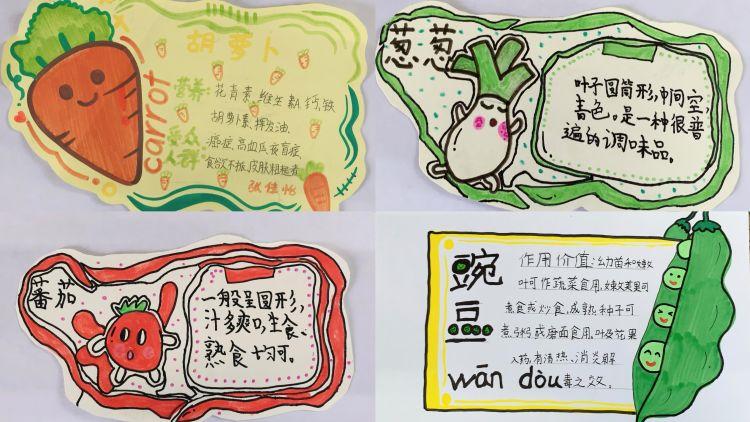 胡萝卜
carrot
营养:花青素,维生素A,钙,铁
胡萝卜素,挥发油.
受众人群:癌症,高血压,夜盲症,
食欲不振,皮肤粗糙者
张佳怡
葱葱
叶子圆筒形,中间空,
青色。是一种很普
遍的调味品。
蕃茄
一般呈圆形,
汁多爽口,生食、
熟食均可。
豌豆
wān dòu
作用价值:幼苗和嫩
叶可作蔬菜食用,嫩荚果可
煮食或炒食,成熟种子可
煮粥或磨面食用,叶及花果
入药,有清热、消炎解
毒之效.